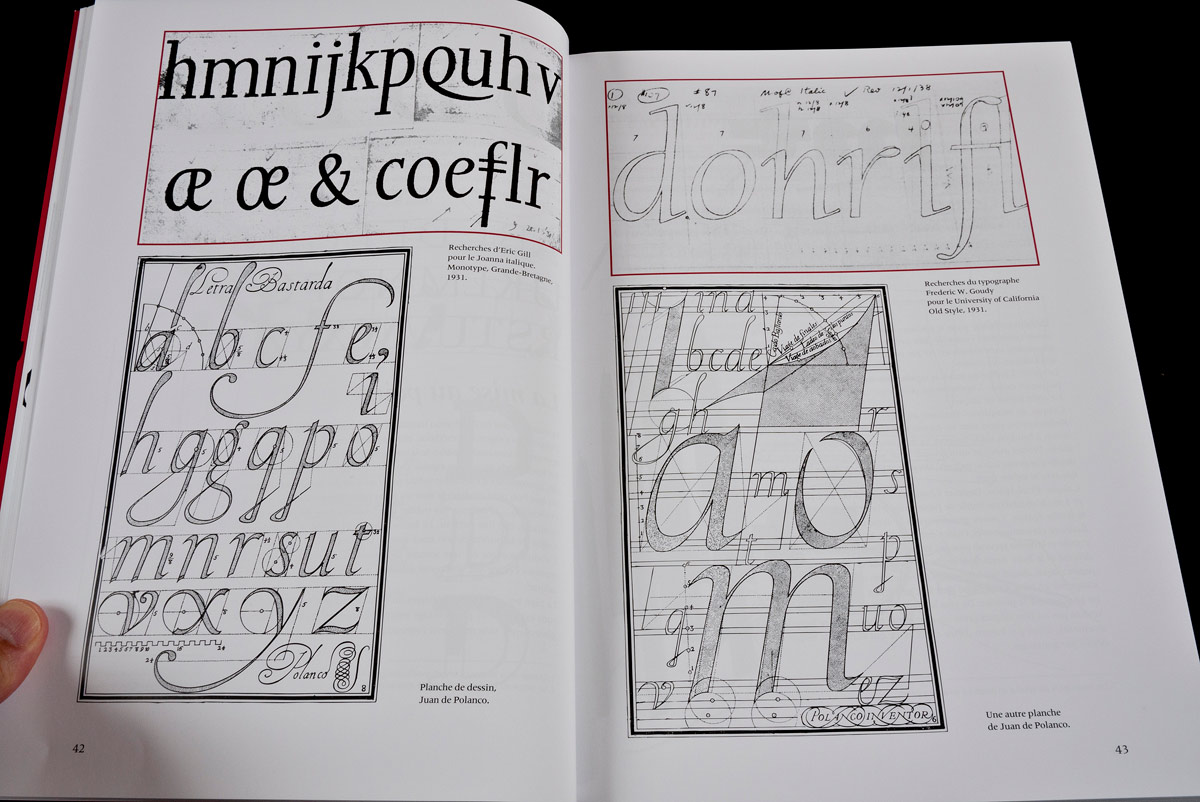 hmnijkpQuhv
æ œ & coeflr
Recherches d'Eric Gill
pour le Joanna italique.
Monotype, Grande-Bretagne,
1931.
Letra Bastarda
a b c f e,
i
h g g q p o
m n r s u t
v x y z
1 2 3 4 5 6 7 8 9 10 16 24
24
Polanco
8
Planche de dessin,
Juan de Polanco.
42
1 # 87 Italic Rev 12/1/38
7 7 7 6 4
donrifl
Recherches du typographe
Frederic W. Goudy
pour le University of California
Old Style, 1931.
m m d
l b c d e
g h r
a m o s
t p
q m u o
v e z
POLANCO INVENTOR
6
Une autre planche
de Juan de Polanco.
43